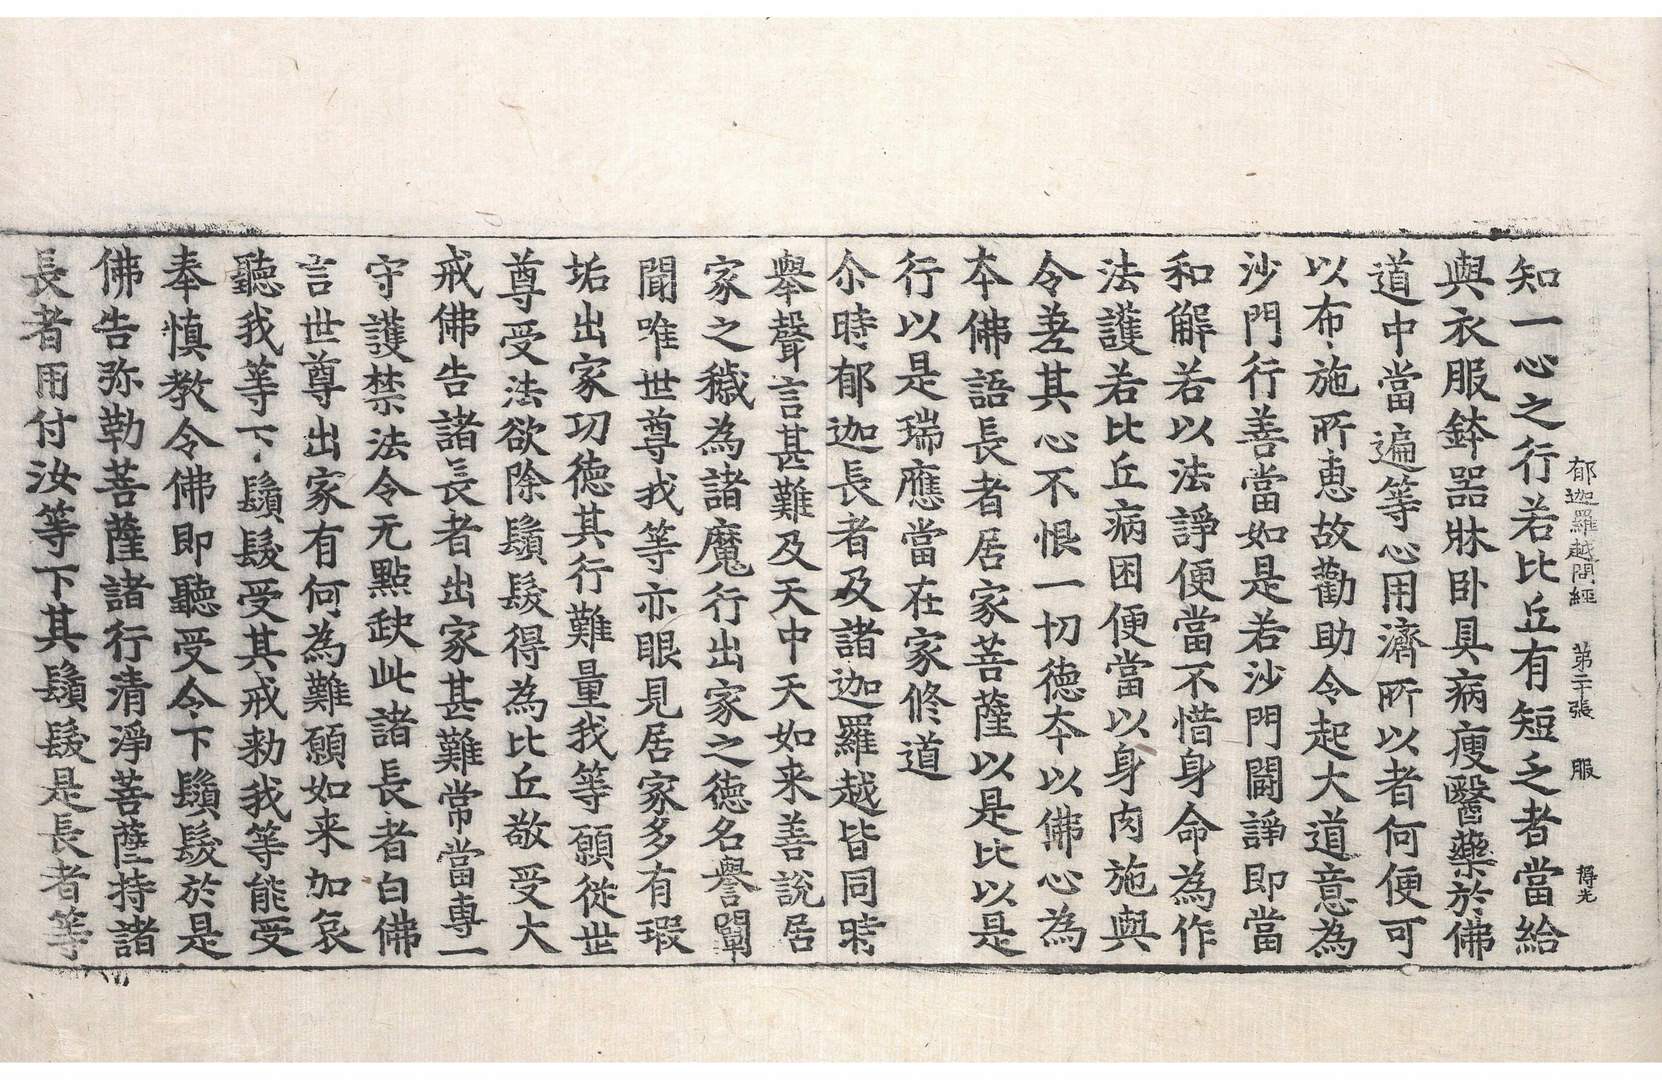 郁迦羅越問經 第二十張 服 得光
知一心之行若比丘有短乏者當給
與衣服鉢器牀卧具病瘦醫藥於佛
道中當遍等心用濟所以者何便可
以布施所恵故勸助令起大道意為
沙門行善當如是若沙門鬪諍即當
和解若以法諍便當不惜身命為作
法護若比丘病困便當以身肉施與
令差其心不恨一切德夲以佛心為
夲佛語長者居家菩薩以是比以是
行以是瑞應當在家修道
尒時郁迦長者及諸迦羅越皆同時
舉聲言甚難及天中天如来善說居
家之穢為諸魔行出家之德名譽闡
聞唯世尊我等亦眼見居家多有瑕
垢出家功德其行難量我等願從世
尊受法欲除鬚髮得為比丘敬受大
戒佛告諸長者出家甚難常當専一
守護禁法令无點缺此諸長者白佛
言世尊出家有何為難願如来加哀
聽我等下鬚髮受其戒勑我等能受
奉慎教令佛即聽受令下鬚髮於是
佛告弥勒菩薩諸行清淨菩薩持諸
長者用付汝等下其鬚髮是長者等